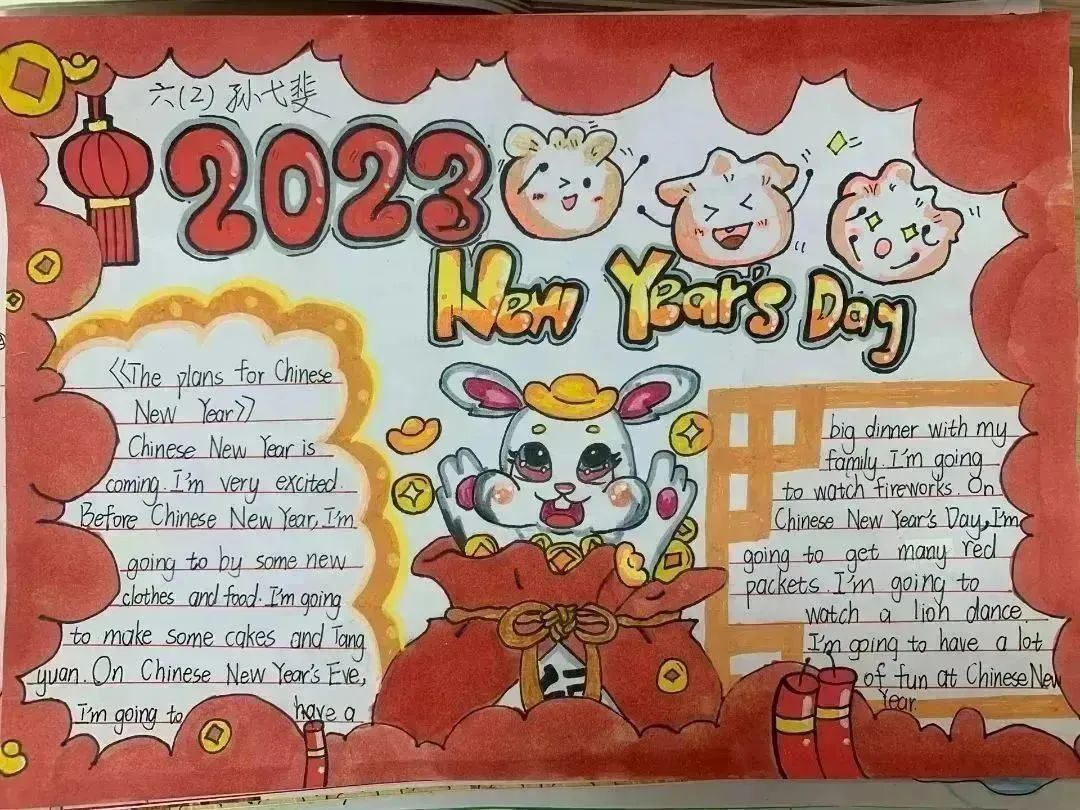 六(2) 孙弋斐
2023
New Year's Day
《The plans for Chinese
New Year》
Chinese New Year is
coming. I'm very excited.
Before Chinese New Year, I'm
going to by some new
clothes and food. I'm going
to make some cakes and Tang
yuan. On Chinese New Year's Eve,
I'm going to have a
big dinner with my
family. I'm going
to watch fireworks. On
Chinese New Year's Day, I'm
going to get many red
packets. I'm going to
watch a lion dance.
I'm going to have a lot
of fun at Chinese New
Year.